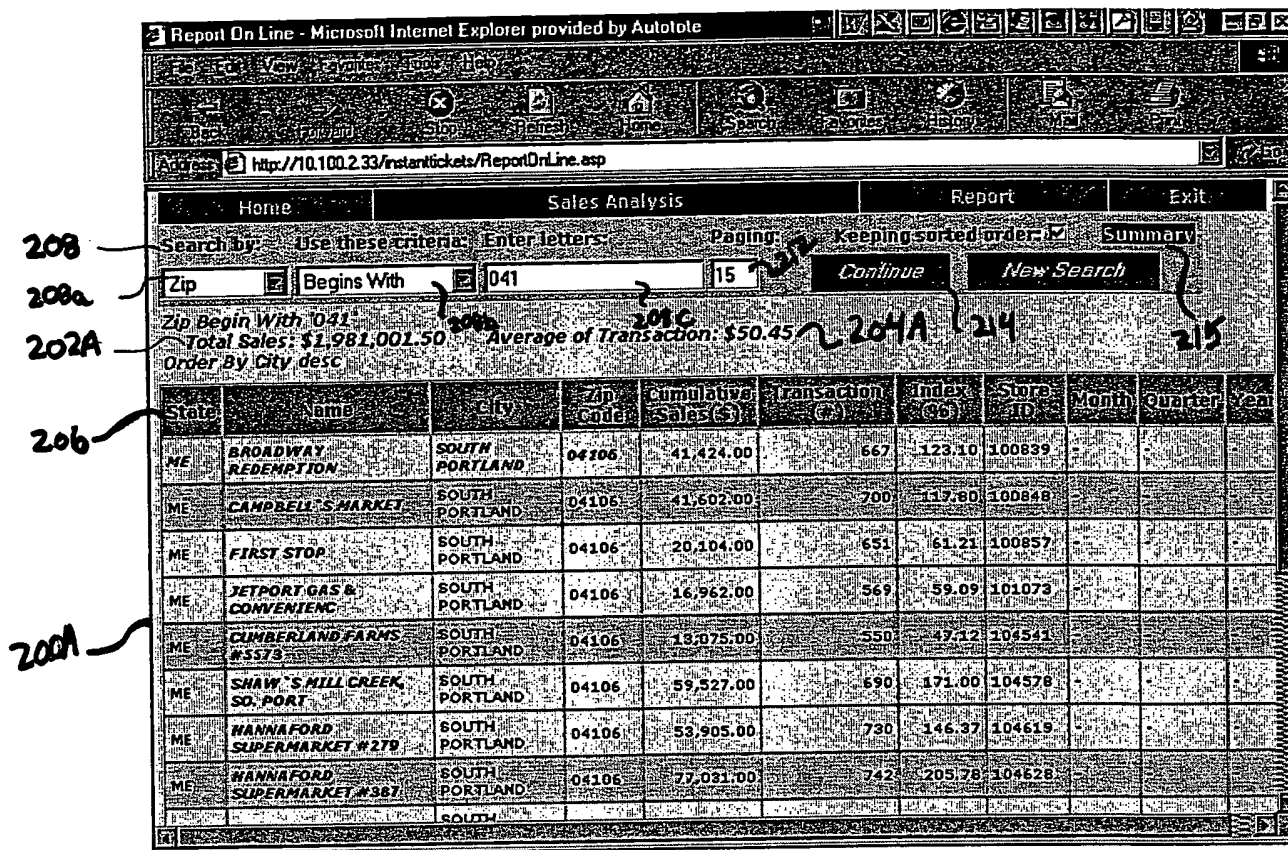 Report On Line - Microsoft Internet Explorer provided by Autotote
File Edit View Favorites Tools Help
Back Forward Stop Refresh Home Search Favorites History Mail Print
Address http://10.100.2.33/instanttickets/ReportOnLine.asp
Home Sales Analysis Report Exit
208 Search by: Use these criteria: Enter letters: Paging: 212 Keeping sorted order: Summary
208a Zip Begins With 208b 041 208c 15 Continue New Search
Zip Begin With '041'
202A Total Sales: $1,981,001.50 Average of Transaction: $50.45 204A 214 215
Order By City desc
206 State Name City Zip Code Cumulative Sales ($) Transaction (#) Index (%) Store ID Month Quarter Year
ME BROADWAY REDEMPTION SOUTH PORTLAND 04106 41,424.00 667 123.10 100839 - -
ME CAMPBELL`S MARKET SOUTH PORTLAND 04106 41,602.00 700 117.80 100848 - -
ME FIRST STOP SOUTH PORTLAND 04106 20,104.00 651 61.21 100857 - -
ME JETPORT GAS & CONVENIENC SOUTH PORTLAND 04106 16,962.00 569 59.09 101073 - -
200A ME CUMBERLAND FARMS #5573 SOUTH PORTLAND 04106 13,075.00 550 47.12 104541 - -
ME SHAW`S MILL CREEK, SO. PORT SOUTH PORTLAND 04106 59,527.00 690 171.00 104578 - -
ME HANNAFORD SUPERMARKET #279 SOUTH PORTLAND 04106 53,905.00 730 146.37 104619 - -
ME HANNAFORD SUPERMARKET #387 SOUTH PORTLAND 04106 77,031.00 742 205.78 104628 - -
SOUTH